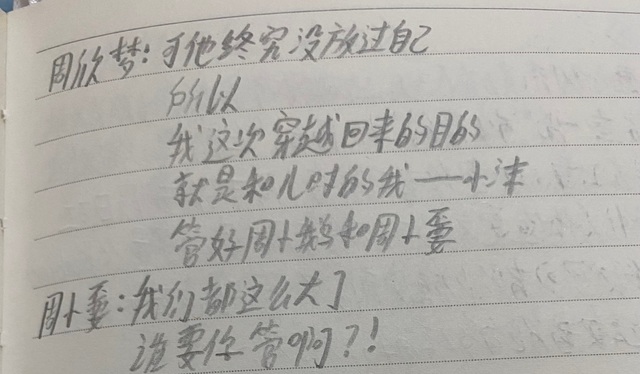 周欣梦:可他终究没放过自己
所以
我这次穿越回来的目的
就是和儿时的我——小沫
管好周卜鹅和周卜耍
周卜耍:我们都这么大了
谁要你管啊?!